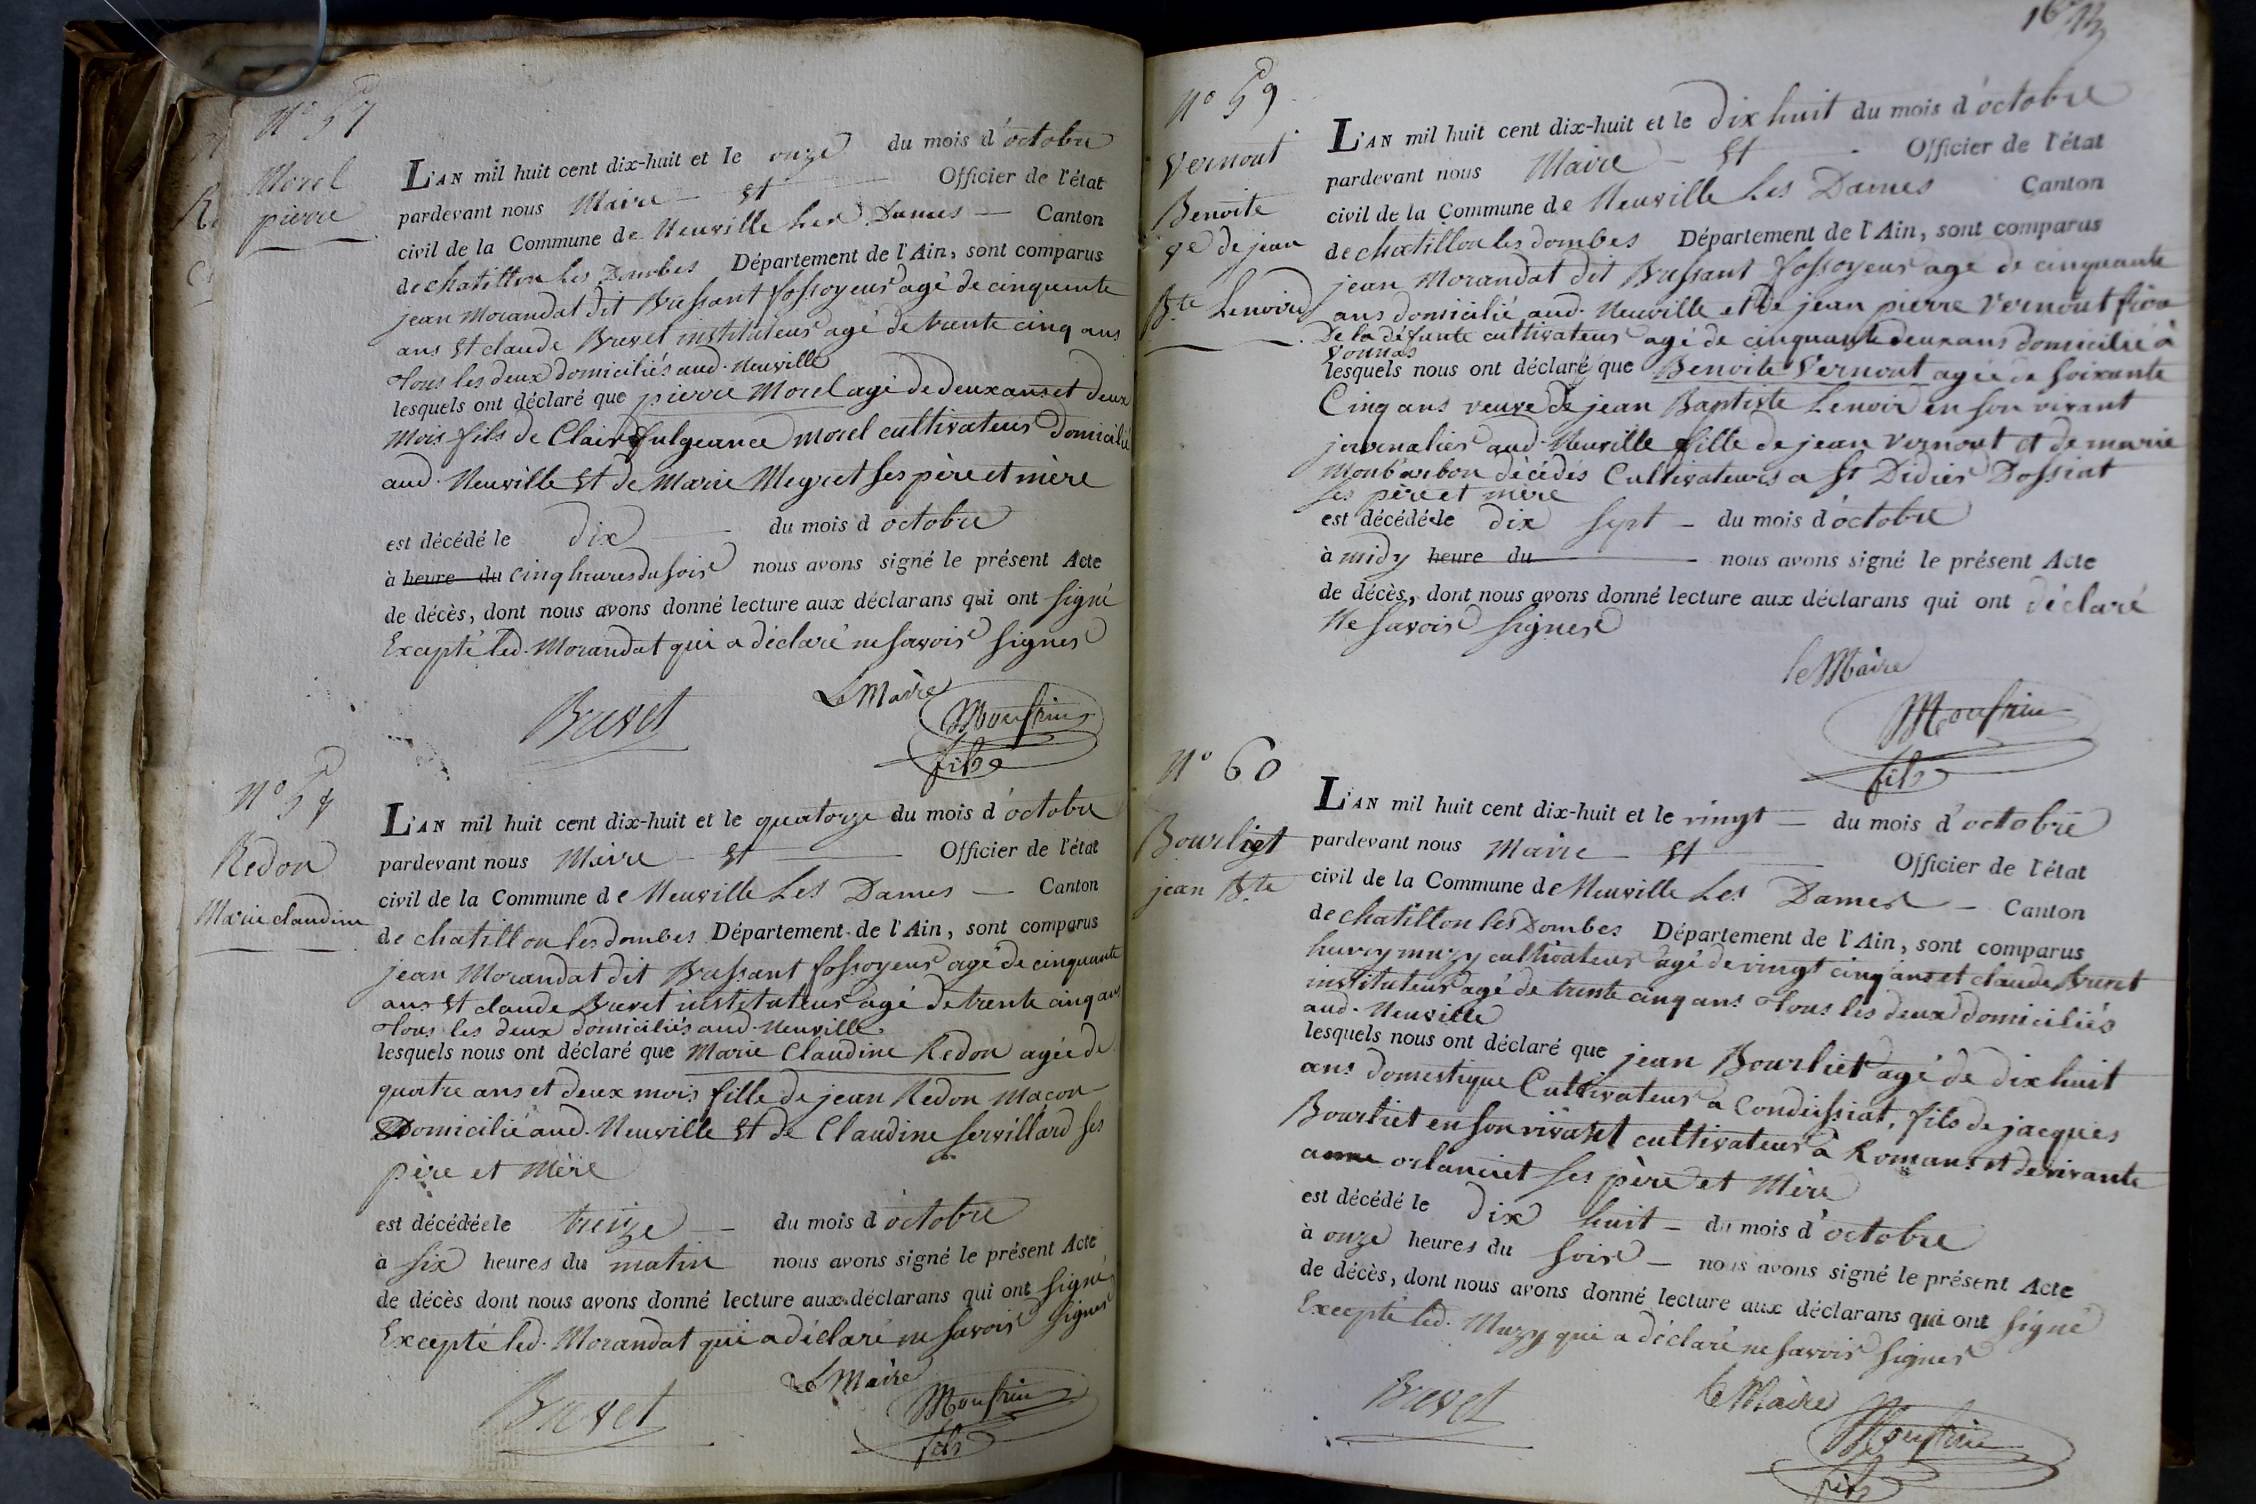 N° 57
Morel
pierre
L'AN mil huit cent dix-huit et le onze du mois d'octobre
pardevant nous Maire Et Officier de l'état
civil de la Commune de Neuville Les Dames Canton
de chatillon les Dombes Département de l'Ain, sont comparus
jean Morandat dit Bressant fossoyeur agé de cinquante
ans Et claude Brevet instituteur agé de trente cinq ans
tous les deux domiciliés aud. Neuville
lesquels ont déclaré que pierre Morel agé de deux ans et deux
mois fils de Clair fulgeance Morel cultivateur Domicilié
aud. Neuville Et de Marie Megret ses père et mère
est décédé le dix du mois d octobre
à heure du cinq heures du soir nous avons signé le présent Acte
de décès, dont nous avons donné lecture aux déclarans qui ont signé
Excepté led. Morandat qui a déclaré ne savoir signer
Le Maire
Brevet
Monfrin
fils
N° 58
Redon
Marie claudine
L'AN mil huit cent dix-huit et le quatorze du mois d'octobre
pardevant nous Maire Et Officier de l'état
civil de la Commune de Neuville Les Dames Canton
de chatillon les dombes Département de l'Ain, sont comparus
jean Morandat dit Bressant fossoyeur agé de cinquante
ans Et claude Brevet instituteur agé de trente cinq ans
tous les deux domiciliés aud. Neuville
lesquels nous ont déclaré que Marie Claudine Redon agée de
quatre ans et deux mois fille de jean Redon Macon
Domicilié aud. Neuville Et de Claudine servillard ses
père et Mère
est décédée le treize du mois d octobre
à six heures du matin nous avons signé le présent Acte
de décès dont nous avons donné lecture aux déclarans qui ont signé
Excepté led. Morandat qui a déclaré ne savoir signer
Le Maire
Brevet
Monfrin
fils
N° 59
Vernout
Benoite
ve de jean
Bte Lenoir
L'AN mil huit cent dix-huit et le Dix huit du mois d'octobre
pardevant nous Maire Et Officier de l'état
civil de la Commune de Neuville Les Dames Canton
de chatillon les dombes Département de l'Ain, sont comparus
jean Morandat dit Bressant fossoyeur agé de cinquante
ans domicilié aud. Neuville et de jean pierre Vernout frère
De la défunte cultivateur agé de cinquante deux ans domicilié à
Vonnas
lesquels nous ont déclaré que Benoite Vernout agée de soixante
Cinq ans veuve de jean Baptiste Lenoir en son vivant
journalier aud. Neuville fille de jean Vernout et de marie
Monbarbon décédés Cultivateurs a St Didier Dossiat
ses père et mère
est décédée le dix sept du mois d'octobre
à midy heure du nous avons signé le présent Acte
de décès, dont nous avons donné lecture aux déclarans qui ont déclaré
Ne savoir signer
le Maire
Monfrin
fils
N° 60
Bourliet
jean Bte
L'AN mil huit cent dix-huit et le vingt du mois d'octobre
pardevant nous Maire Et Officier de l'état
civil de la Commune de Neuville Les Dames Canton
de chatillon les Dombes Département de l'Ain, sont comparus
muzy cultivateur agé de vingt cinq ans et claude Brevet
instituteur agé de trente cinq ans tous les deux domiciliés
aud. Neuville
lesquels nous ont déclaré que jean Bourliet agé de dix huit
ans domestique Cultivateur a Condeissiat, fils de jacques
Bourliet en son vivant cultivateur à Romans et de vivante
anne ses père et Mère
est décédé le dix huit du mois d'octobre
à onze heures du soir nous avons signé le présent Acte
de décès, dont nous avons donné lecture aux déclarans qui ont signé
Excepté led. Muzy qui a déclaré ne savoir signer
le Maire
Brevet
Monfrin
fils